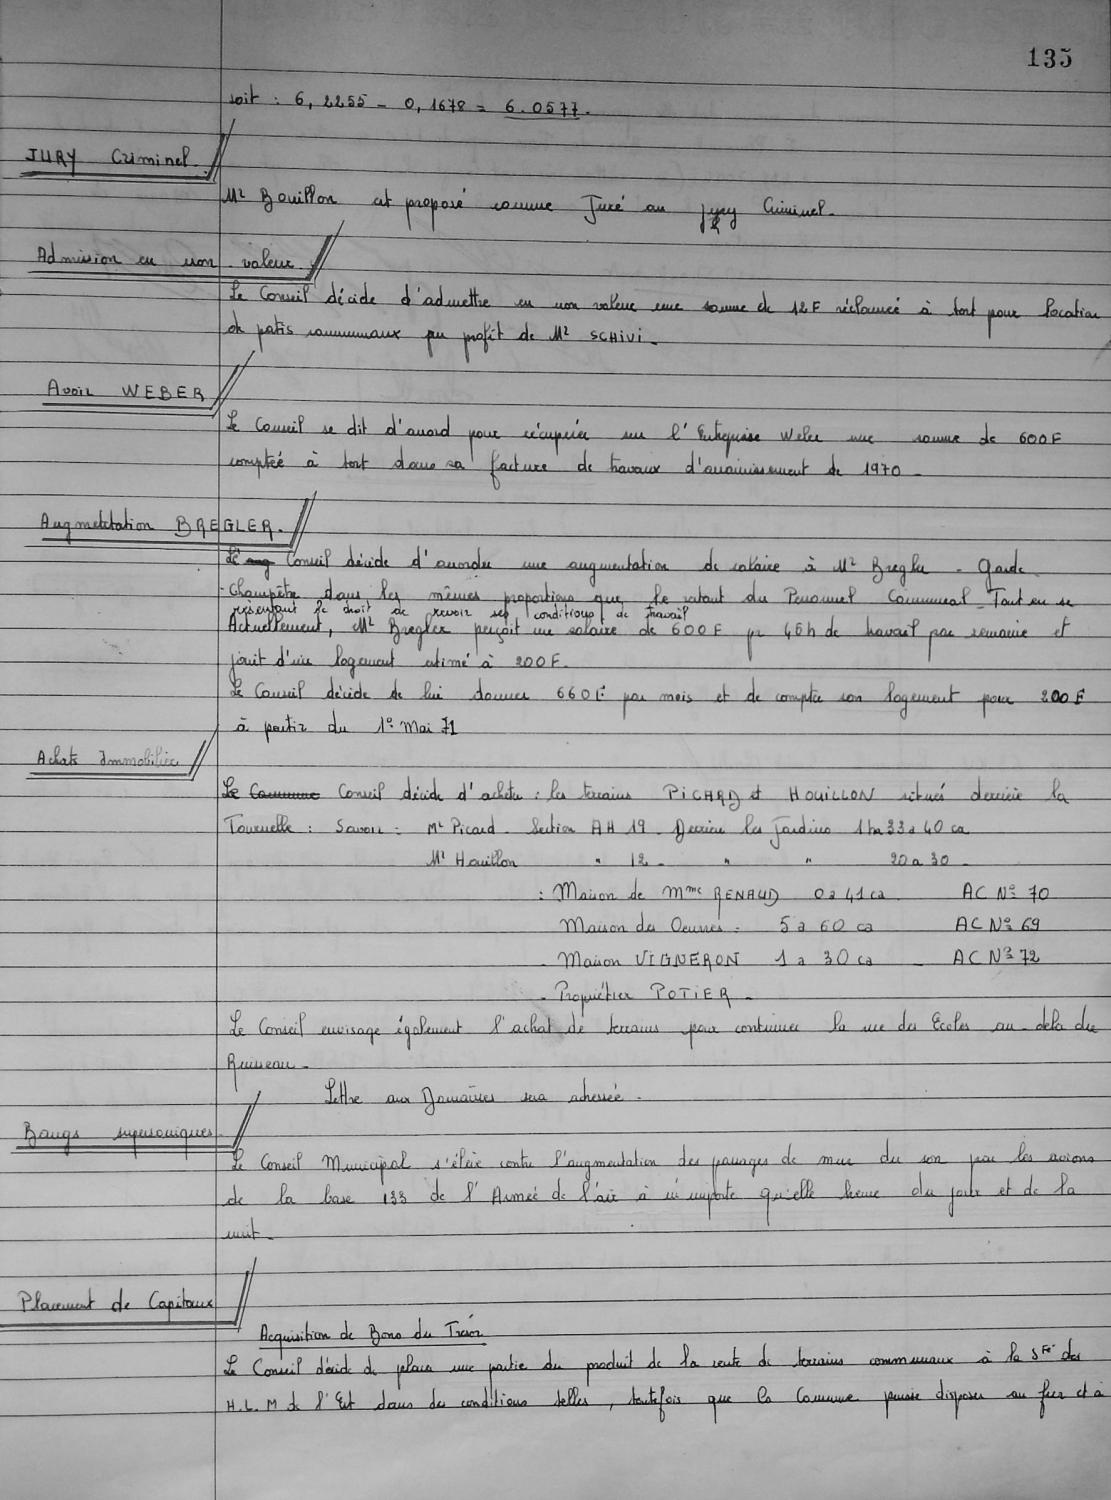 135
soit : 6,2255 - 0,1678 = 6.0577.
JURY Criminel.
Mr Bouillon est proposé comme Juré au Jury Criminel.
Admission en non valeur.
Le Conseil décide d'admettre en non valeur une somme de 12F réclamée à tort pour location
de patis communaux au profit de Mr SCHIVI.
Avoir WEBER
Le Conseil se dit d'accord pour récupérer sur l'Entreprise Weber une somme de 600F
comptée à tort dans sa facture de travaux d'assainissement de 1970 -
Augmentation BREGLER.
Le Conseil décide d'accorder une augmentation de salaire à Mr Bregler - Garde
Champêtre dans les mêmes proportions que le restant du Personnel Communal - Tout en se
réservant le droit de revoir ses conditions de travail
Actuellement, Mr Bregler perçoit un salaire de 600F pr 46h de travail par semaine et
jouit d'un logement estimé à 200F.
Le Conseil décide de lui donner 660F par mois et de compter son logement pour 200F
à partir du 1º Mai 71
Achats Immobilier
Le Commune Conseil décide d'acheter : les terrains PICARD et HOUILLON situés derrière la
Tournelle : Savoir : Mr Picard - Section AH 19 - Derrière les Jardins 1ha 33a 40 ca
Mr Houillon " 12 - " " 20 a 30 -
: Maison de Mme RENAUD 0a 41ca AC Nº 70
Maison des Oeuvres : 5 a 60 ca AC Nº 69
- Maison VIGNERON 1 a 30 ca - AC Nº 72
- Propriétier POTIER -
Le Conseil envisage également l'achat de terrains pour continuer la rue des Ecoles au-delà du
Ruisseau -
Lettre aux Domaines sera adressée -
Bangs supersoniques
Le Conseil Municipal s'élève contre l'augmentation des passages de mur du son par les avions
de la base 133 de l'Armée de l'air à n'importe qu'elle heure du jour et de la
nuit -
Placement de Capitaux
Acquisition de Bons du Trésor
Le Conseil décide de placer une partie du produit de la vente de terrains communaux à la Sté des
H.L.M de l'Est dans des conditions telles, toutefois que la Commune puisse disposer au fur et à